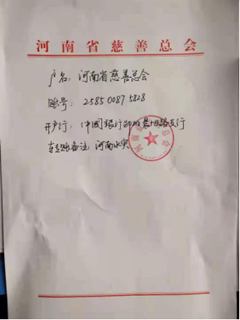 河南省慈善总会
户名：河南省慈善总会
账号：2585 0087 5828
开户行：中国银行郑州花园路支行
备注：河南水灾